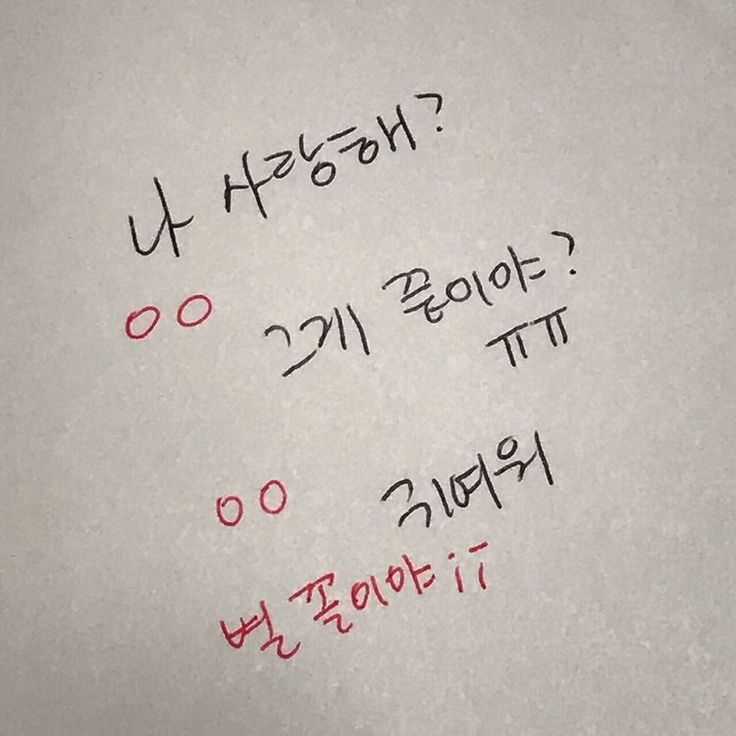 나 사랑해?
ㅇㅇ 그게 끝이야?
ㅠㅠ
ㅇㅇ 귀여워
별 꼴이야;;